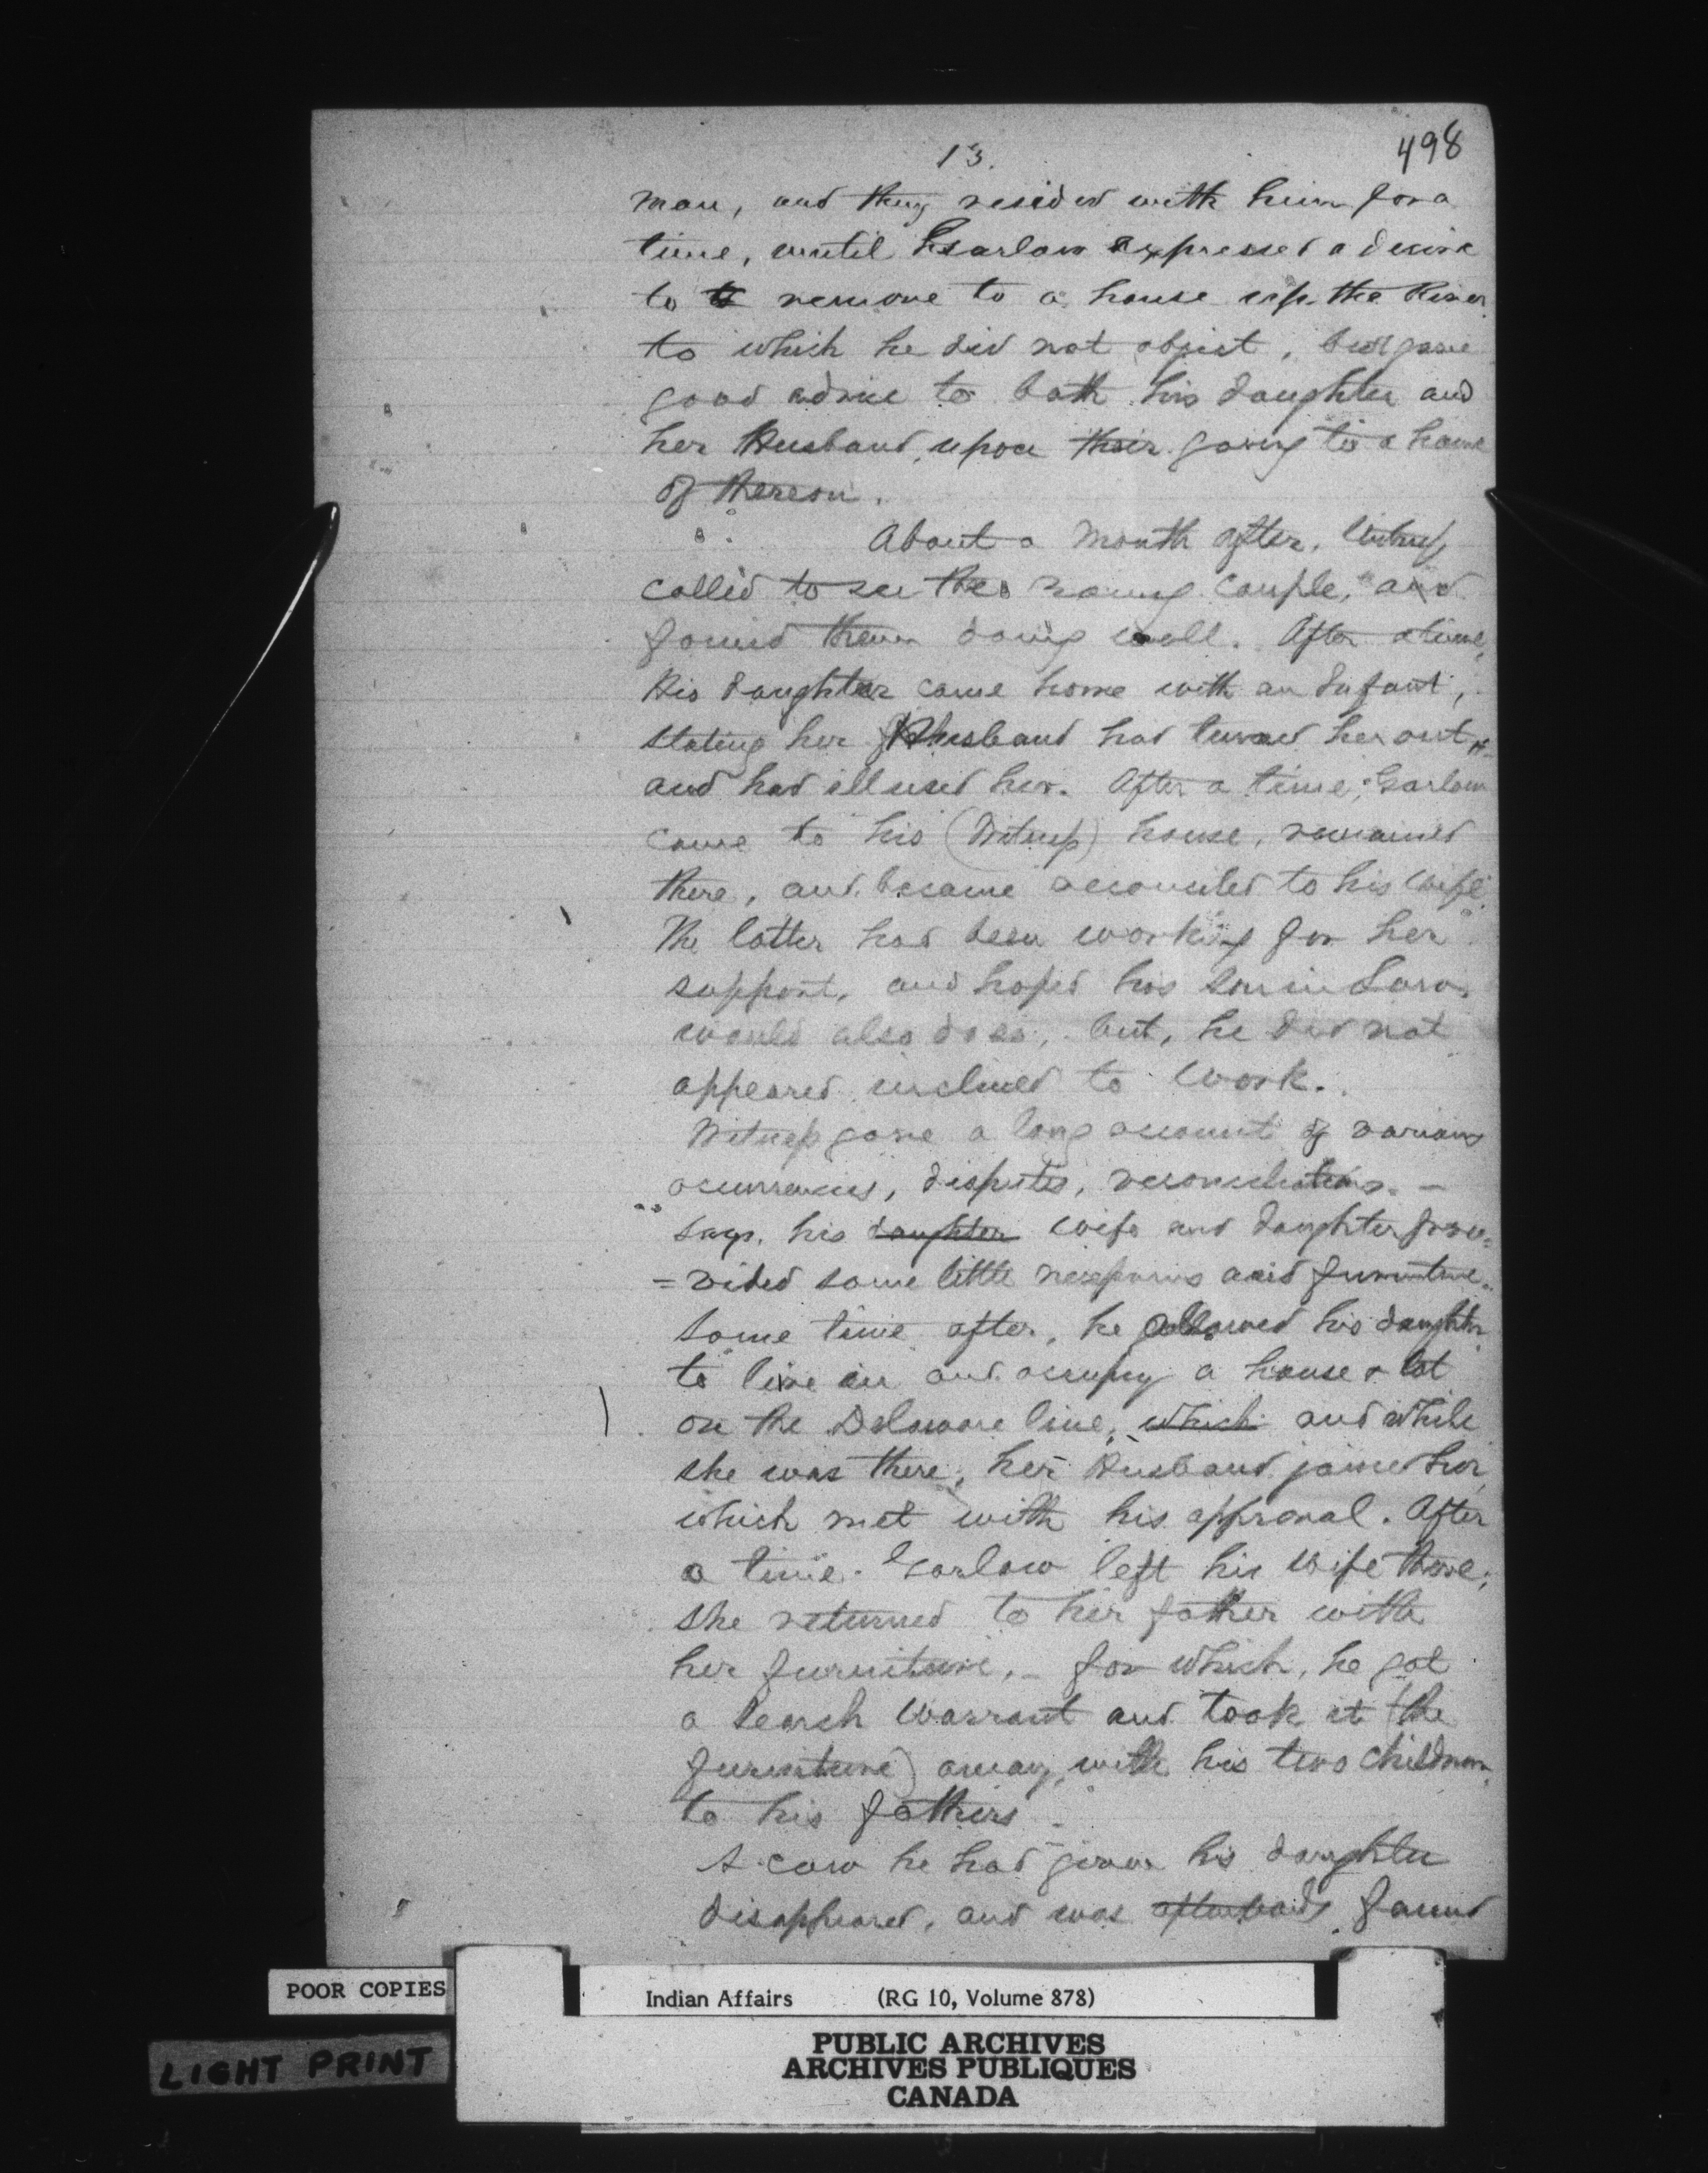 13.
498
man, and they resided with him for a
time, until Garlow expressed a desire
to remove to a house up the River
to which he did not object, but gave
good advice to both his daughter and
her Husband, upon their going to a home
of thereon.
About a month after, Witness
called to see the young couple, and
found them doing well. After a time,
His daughter came home with an Infant,
stating her Husband had turned her out
and had illused her. After a time, Garlow
came to his (Witness) house, remained
there, and became reconciled to his wife
The latter had been working for her
support, and hoped his Son in Law
would also do so, but, he did not
appeared inclined to work.
Witness gave a long account of various
ocurrences, disputes, reconciliations. -
says, his daughter wife and daughter pro=
=vided some little necessaries and furniture.
Some time after, he allowed his daughter
to live in and occupy a house & lot
on the Delaware line, which and while
she was there, her Husband joined her
which met with his approval. After
a time. Garlow left his wife there;
She returned to her father with
her furniture, - for which, he got
a Search Warrant and took it (the
furniture) away, with his two children
to his fathers -
A cow he had given his daughter
disappeared, and was afterwards found
POOR COPIES
LIGHT PRINT
Indian Affairs (RG 10, Volume 878)
PUBLIC ARCHIVES
ARCHIVES PUBLIQUES
CANADA